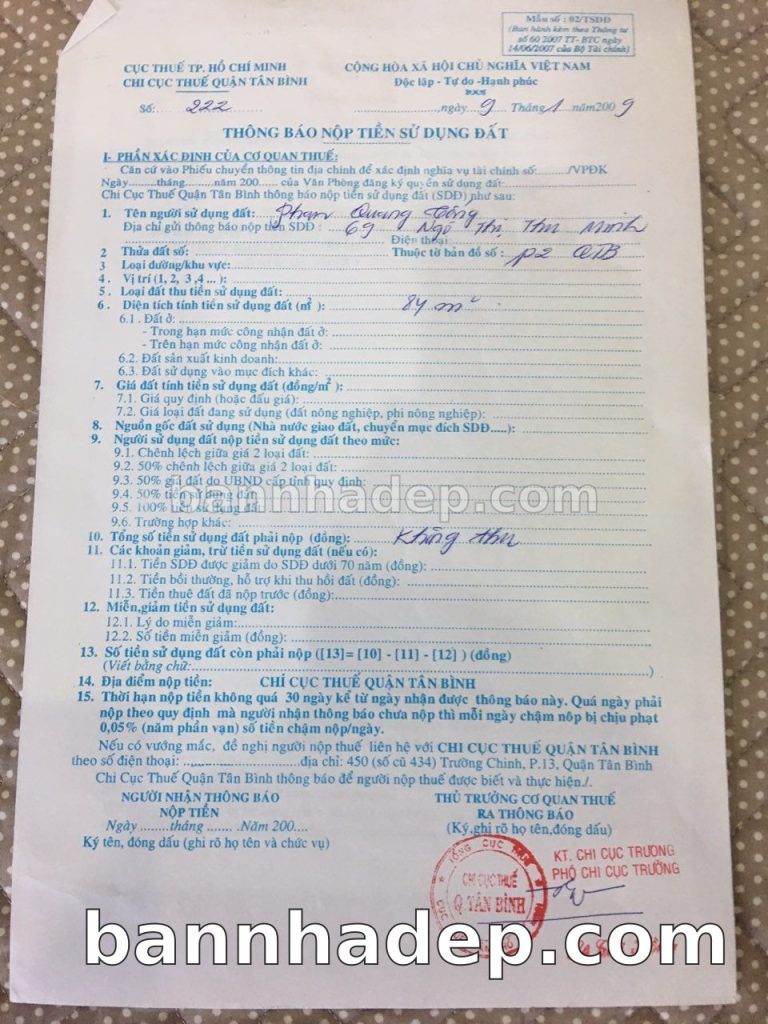 Mẫu số : 02/TSDĐ
(Ban hành kèm theo Thông tư
số 60 2007 TT- BTC ngày
14/06/2007 của Bộ Tài chính)
CỤC THUẾ TP. HỒ CHÍ MINH
CHI CỤC THUẾ QUẬN TÂN BÌNH
CỘNG HÒA XÃ HỘI CHỦ NGHĨA VIỆT NAM
Độc lập - Tự do -Hạnh phúc
Số: 222
..........,ngày 9 Tháng 1 năm 2009
THÔNG BÁO NỘP TIỀN SỬ DỤNG ĐẤT
I- PHẦN XÁC ĐỊNH CỦA CƠ QUAN THUẾ:
Căn cứ vào Phiếu chuyển thông tin địa chính để xác định nghĩa vụ tài chính số:......../VPĐK
Ngày........tháng.........năm 200..... của Văn Phòng đăng ký quyền sử dụng đất:
Chi Cục Thuế Quận Tân Bình thông báo nộp tiền sử dụng đất (SDĐ) như sau:
1. Tên người sử dụng đất: Phạm Quang
Địa chỉ gửi thông báo nộp tiền SDĐ : 69 Ngô Thị Thu Minh
Điện thoại
2 Thửa đất số: Thuộc tờ bản đồ số : P2 QTB
3 Loại đường/khu vực:
4 . Vị trí (1, 2, 3 ,4 ... ):
5 . Loại đất thu tiền sử dụng đất:
6 . Diện tích tính tiền sử dụng đất (m²): 84 m²
6.1 . Đất ở:
- Trong hạn mức công nhận đất ở:
- Trên hạn mức công nhận đất ở:
6.2. Đất sản xuất kinh doanh:
6.3. Đất sử dụng vào mục đích khác:
7. Giá đất tính tiền sử dụng đất (đồng/m²):
7.1. Giá quy định (hoặc đấu giá):
7.2. Giá loại đất đang sử dụng (đất nông nghiệp, phi nông nghiệp):
8. Nguồn gốc đất sử dụng (Nhà nước giao đất, chuyển mục đích SDĐ.....):
9. Người sử dụng đất nộp tiền sử dụng đất theo mức:
9.1. Chênh lệch giữa giá 2 loại đất:
9.2. 50% chênh lệch giữa giá 2 loại đất:
9.3. 50% giá đất do UBND cấp tỉnh quy định:
9.4. 50% tiền sử dụng đất
9.5. 100% tiền sử dụng đất
bannhadep.com
9.6. Trường hợp khác:
10. Tổng số tiền sử dụng đất phải nộp (đồng): Không thu
11. Các khoản giảm, trừ tiền sử dụng đất (nếu có):
11.1. Tiền SDĐ được giảm do SDĐ dưới 70 năm (đồng):
11.2. Tiền bồi thường, hỗ trợ khi thu hồi đất (đồng):
11.3. Tiền thuê đất đã nộp trước (đồng):
12. Miễn,giảm tiền sử dụng đất:
12.1. Lý do miễn giảm:
12.2. Số tiền miễn giảm (đồng):
13. Số tiền sử dụng đất còn phải nộp ([13]= [10] - [11] - [12] ) (đồng)
(Viết bằng chữ:..........)
14. Địa điểm nộp tiền: CHI CỤC THUẾ QUẬN TÂN BÌNH
15. Thời hạn nộp tiền không quá 30 ngày kể từ ngày nhận được thông báo này. Quá ngày phải
nộp theo quy định mà người nhận thông báo chưa nộp thì mỗi ngày chậm nộp bị chịu phạt
0,05% (năm phần vạn) số tiền chậm nộp/ngày.
Nếu có vướng mắc, đề nghị người nộp thuế liên hệ với CHI CỤC THUẾ QUẬN TÂN BÌNH
theo số điện thoại: ..........địa chỉ: 450 (số cũ 434) Trường Chinh, P.13, Quận Tân Bình
Chi Cục Thuế Quận Tân Bình thông báo để người nộp thuế được biết và thực hiện./.
NGƯỜI NHẬN THÔNG BÁO
NỘP TIỀN
Ngày ........tháng ........Năm 200....
Ký tên, đóng dấu (ghi rõ họ tên và chức vụ)
THỦ TRƯỞNG CƠ QUAN THUẾ
RA THÔNG BÁO
(Ký,ghi rõ họ tên,đóng dấu)
KT. CHI CỤC TRƯỞNG
PHÓ CHI CỤC TRƯỞNG
TỔNG CỤC THUẾ
CHI CỤC THUẾ
Q TÂN BÌNH
bannhadep.com